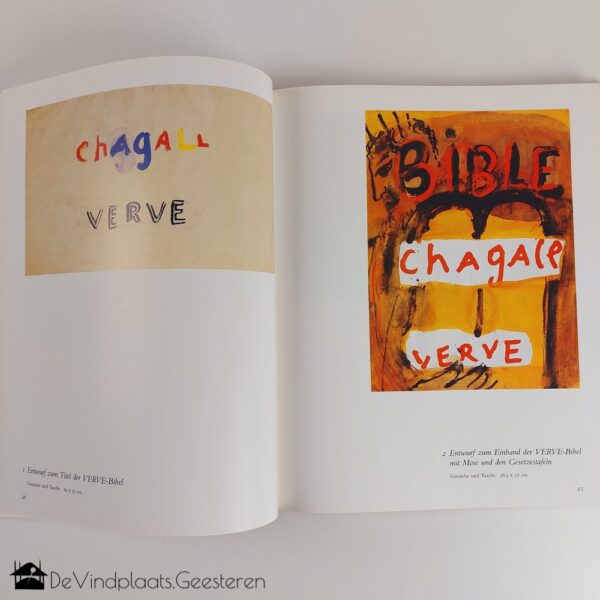 chagall
VERVE
1 Entwurf zum Titel der VERVE-Bibel
Gouache und Tusche
BIBLE
chagall
VERVE
2 Entwurf zum Einband der VERVE-Bibel
mit Mose und den Gesetzestafeln
Gouache und Tusche 36,3 x 27 cm
27
DeVindplaats.Geesteren